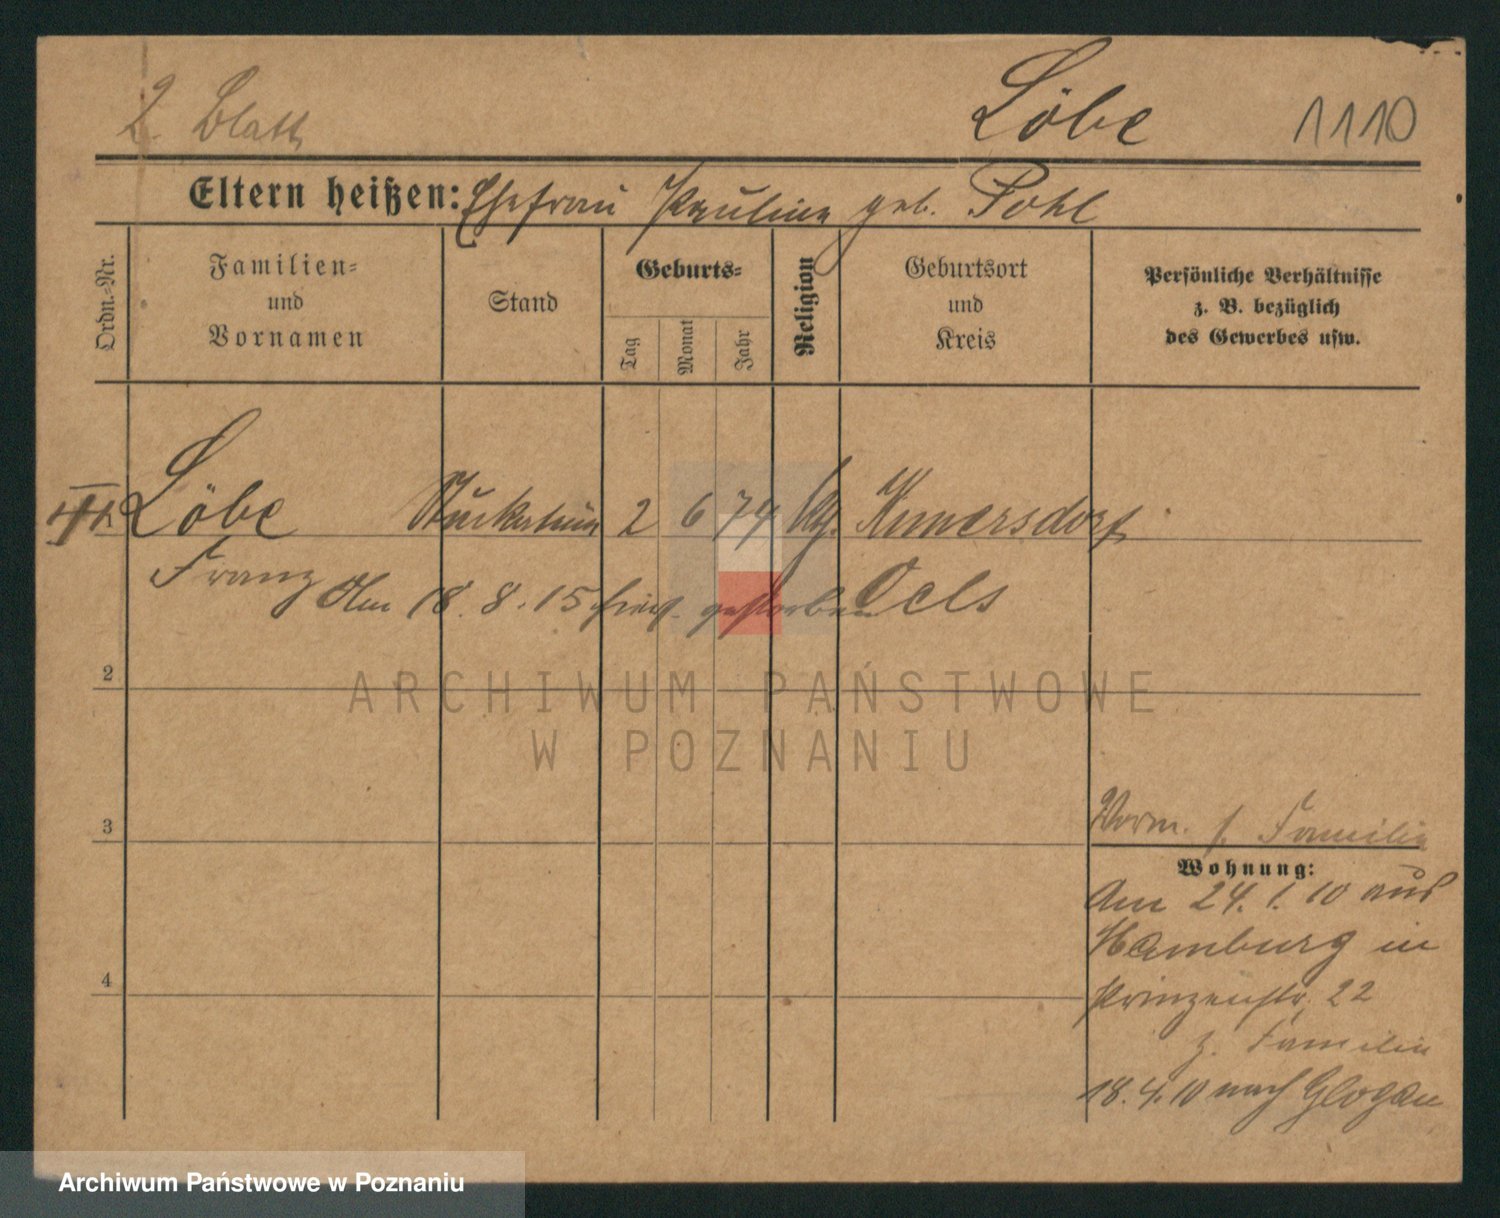 2. Blatt Löbe 1110
Eltern heißen: Ehefrau Pauline geb. Pohl
Ordn.-Nr.
Familien-
und
Vornamen
Stand
Geburts-
Tag
Monat
Jahr
Religion
Geburtsort
und
Kreis
Persönliche Verhältnisse
z. B. bezüglich
des Gewerbes usw.
Löbe Stuckateur 2 6 74 ktg. Kunersdorf
Franz Oels
Am 18.8.15 gestorben
2
3
4
Vorm. s. Familie
Wohnung:
Am 24.1.10 aus
Hamburg in
Prinzenstr. 22
z. Familie
18.4.10 nach Glogau
ARCHIWUM PAŃSTWOWE
W POZNANIU
Archiwum Państwowe w Poznaniu